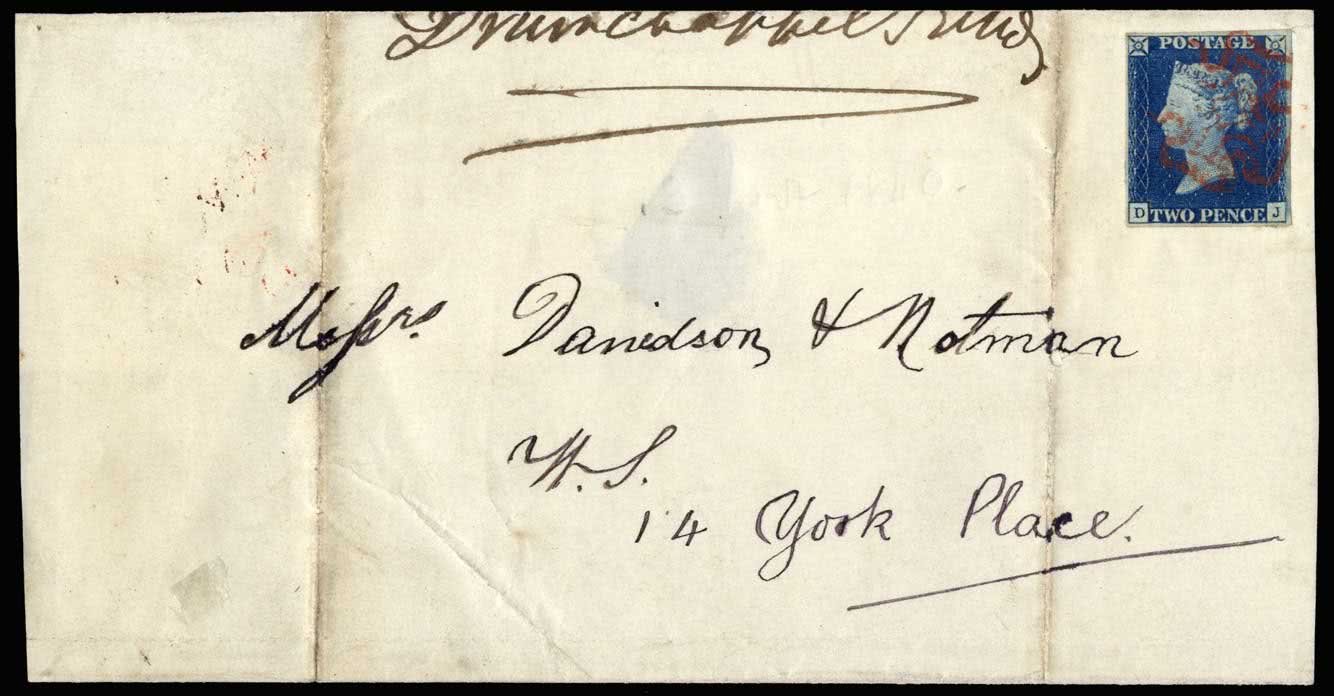 POSTAGE
D TWO PENCE J
Messrs. Davidson & Notman
W.S.
14 York Place.